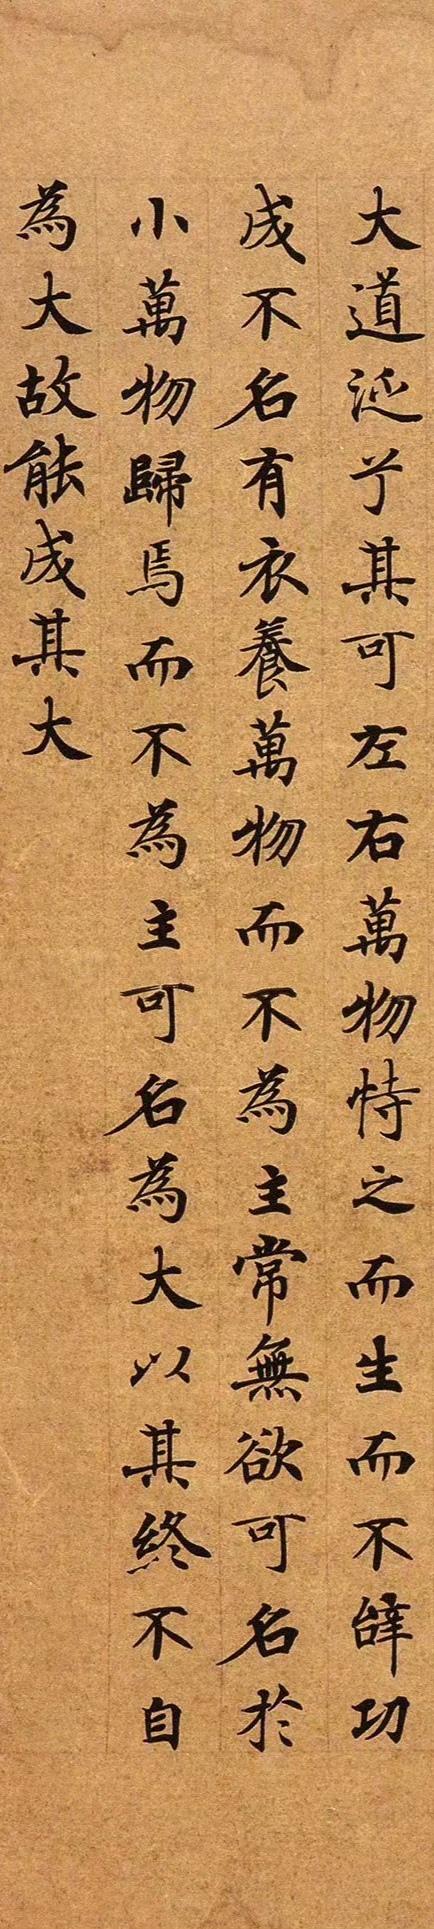 大道泛兮其可左右萬物恃之而生而不辝功
成不名有衣養萬物而不為主常無欲可名於
小萬物歸焉而不為主可名為大以其終不自
為大故能成其大